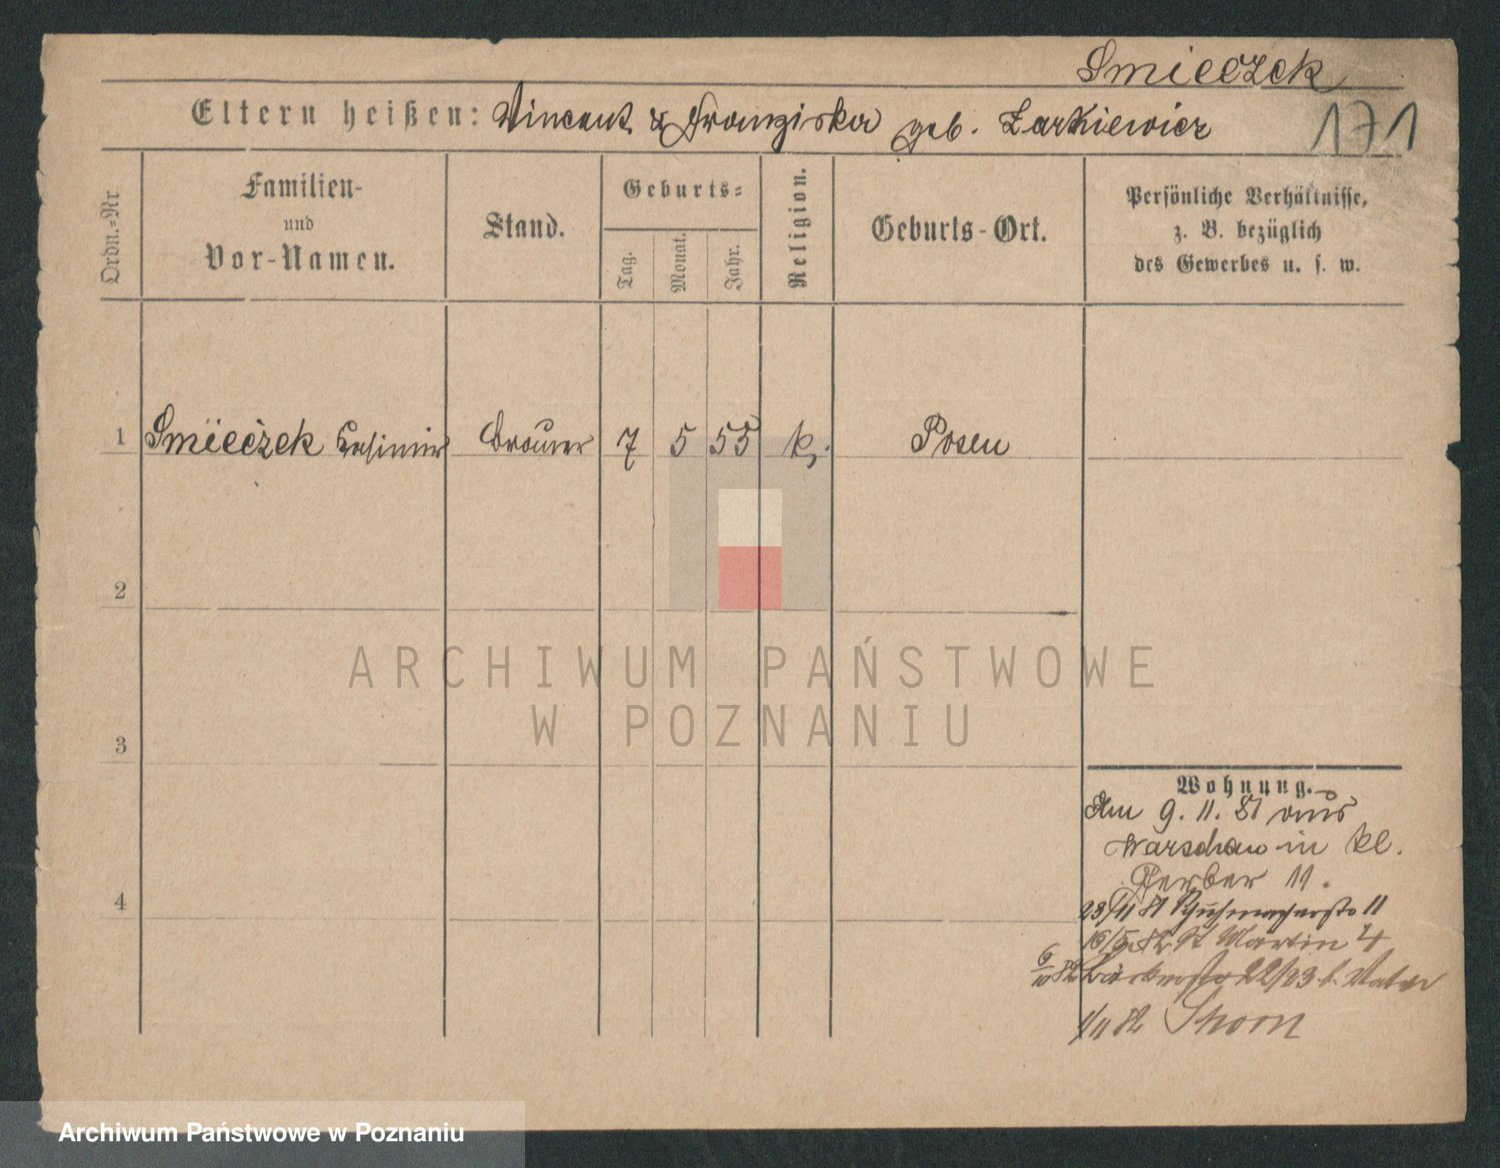 Smieczek
Eltern heißen: Vincent & Franziska geb. Zarkiewicz
171
Ordn.-Nr
Familien-
und
Vor-Namen.
Stand.
Geburts-
Tag.
Monat.
Jahr.
Religion.
Geburts-Ort.
Persönliche Verhältnisse,
z. B. bezüglich
des Gewerbes u. s. w.
1 Smieczek Casimir Brauer 7 5 55 k. Posen
2
ARCHIWUM PAŃSTWOWE
W POZNANIU
3
Wohnung.
Am 9. 11. 81 aus
Warschau in kl.
Gerber 11.
4
23/11 81 Schuhmacherstr 11
16/5 82 St Martin 4
6/10 82 22/23 b. Vater
1/11 82 Thorn
Archiwum Państwowe w Poznaniu